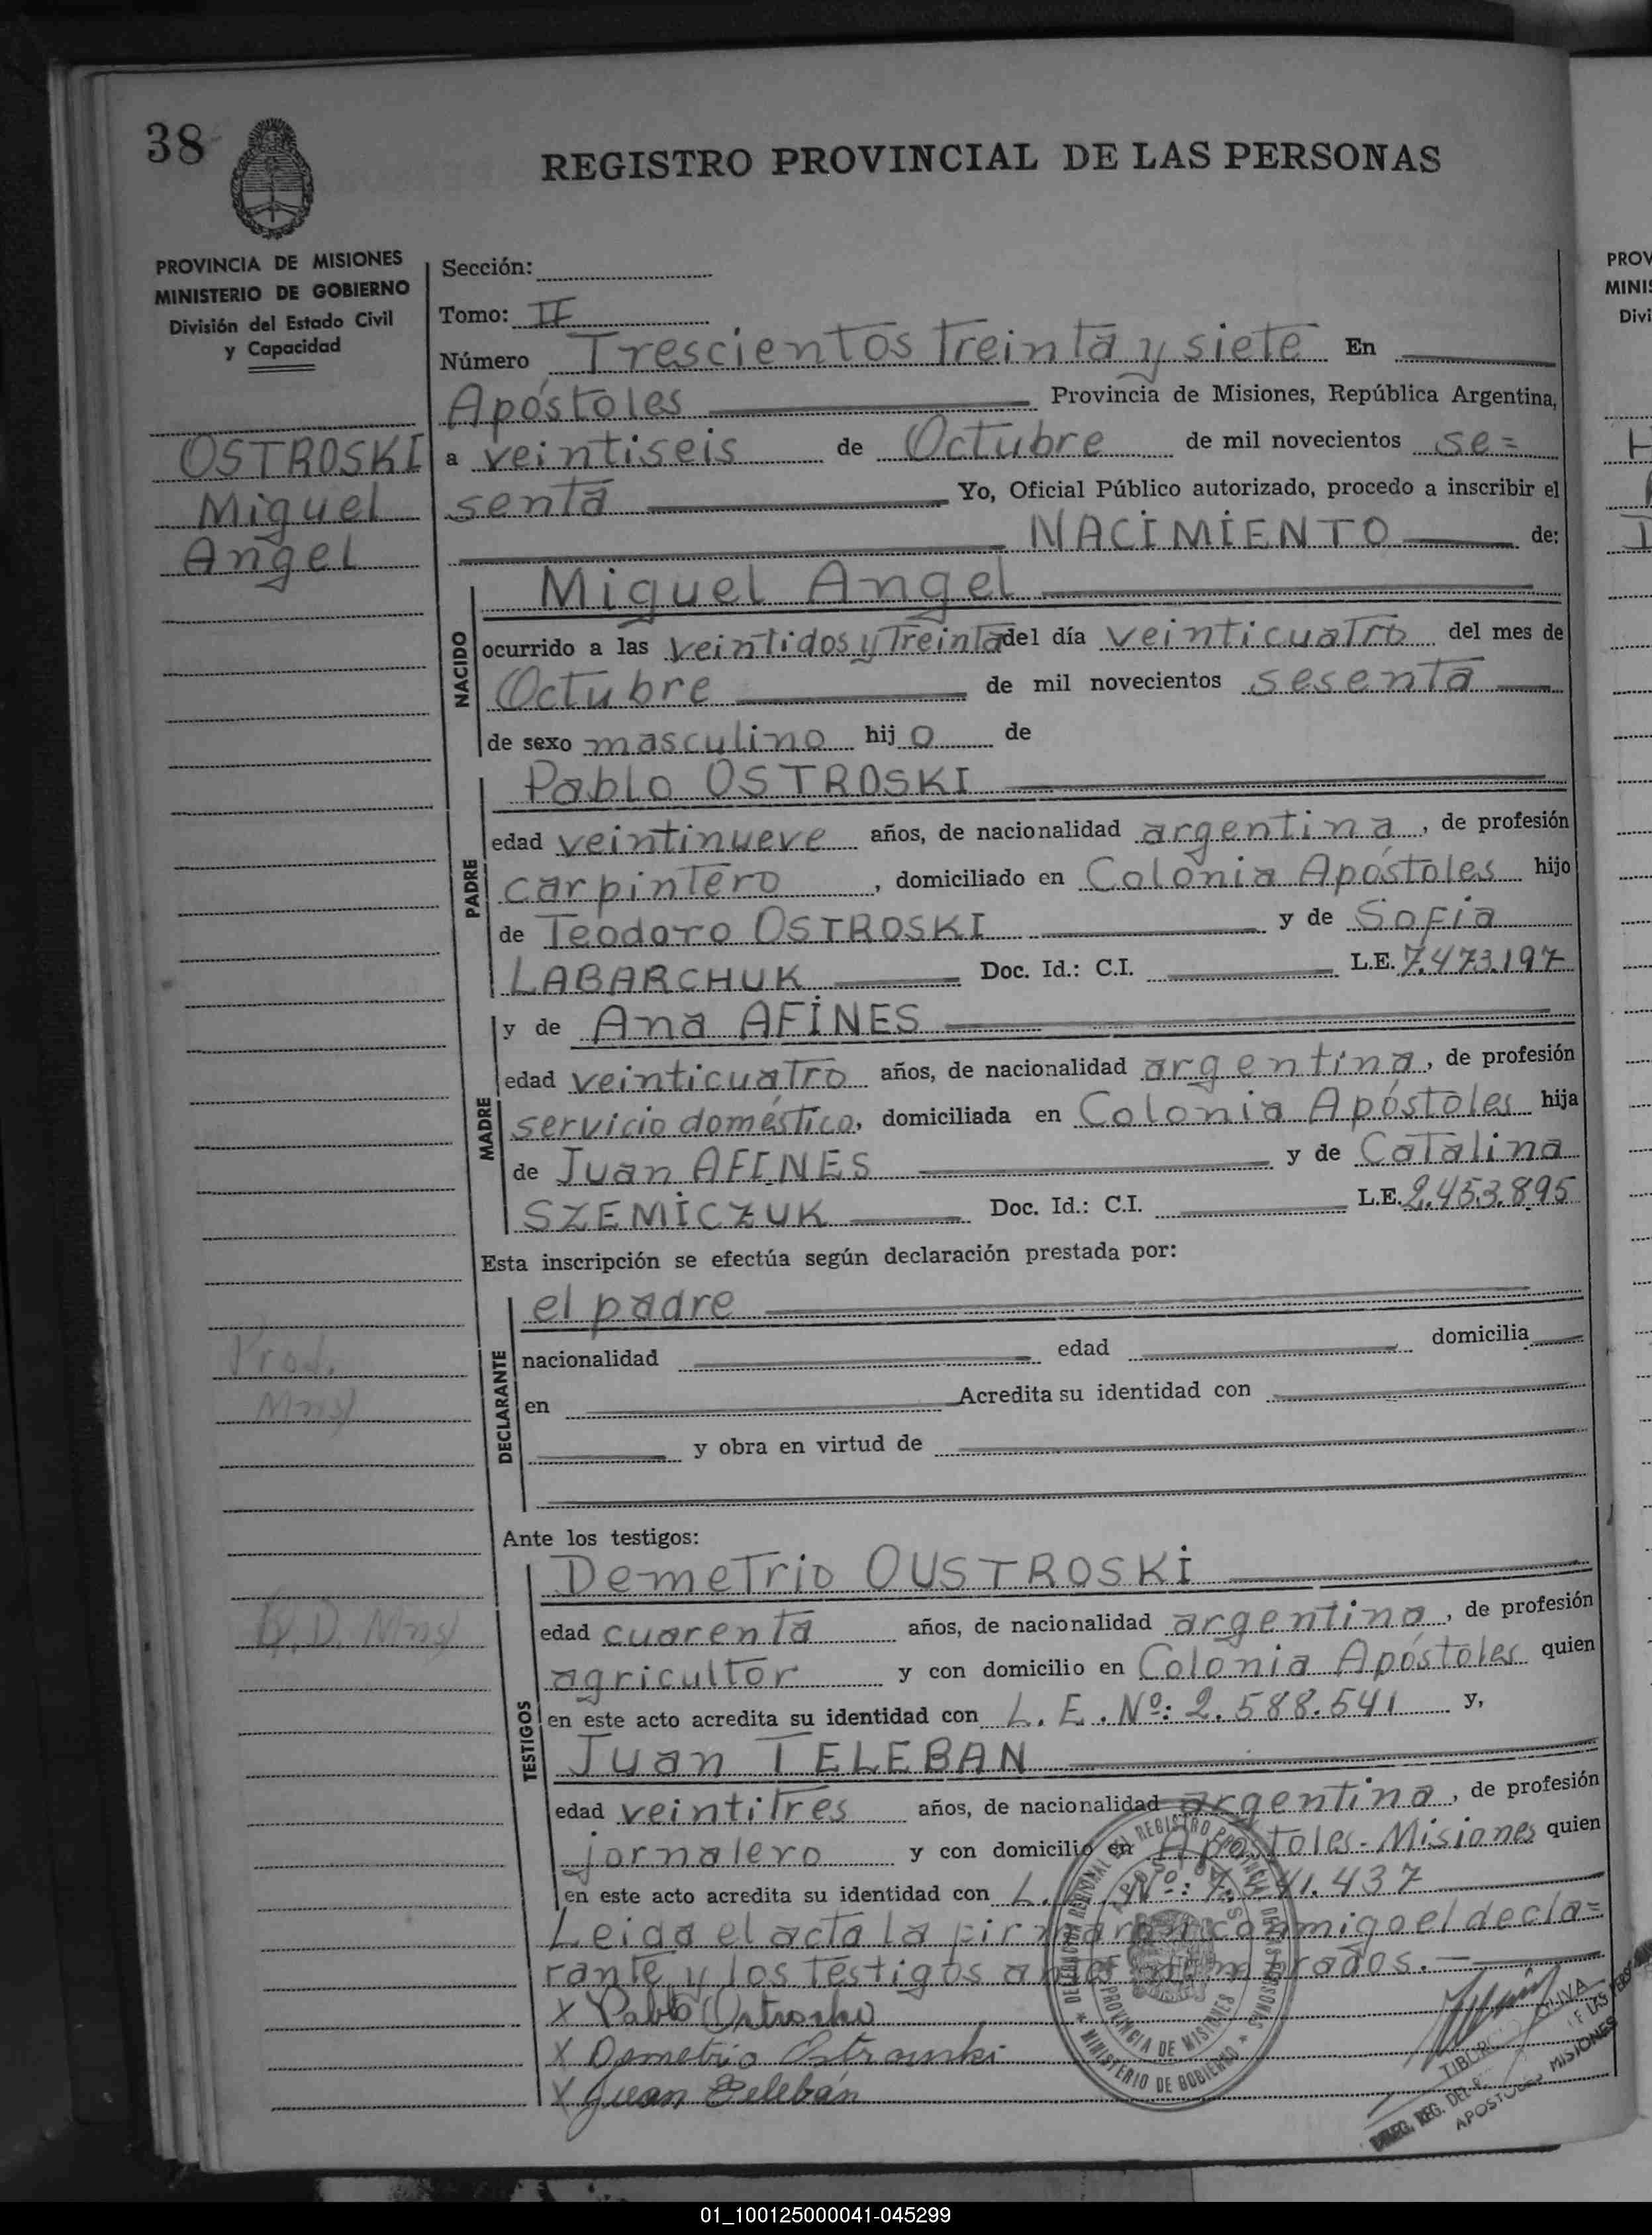 38
REGISTRO PROVINCIAL DE LAS PERSONAS
PROVINCIA DE MISIONES
MINISTERIO DE GOBIERNO
División del Estado Civil
y Capacidad
OSTROSKI
Miguel
Angel
Sección:
Tomo: II
Número Trescientos Treinta y siete En
Apóstoles Provincia de Misiones, República Argentina,
a veintiseis de Octubre de mil novecientos se=
senta Yo, Oficial Público autorizado, procedo a inscribir el
NACIMIENTO de:
NACIDO
Miguel Angel
ocurrido a las veintidos y Treinta del día veinticuatro del mes de
Octubre de mil novecientos sesenta
de sexo masculino hijo de
PADRE
Pablo OSTROSKI
edad veintinueve años, de nacionalidad argentina, de profesión
carpintero, domiciliado en Colonia Apóstoles hijo
de Teodoro OSTROSKI y de Sofia
LABARCHUK Doc. Id.: C.I. L.E. 7.473.197
MADRE
y de Ana AFINES
edad veinticuatro años, de nacionalidad argentina, de profesión
servicio doméstico, domiciliada en Colonia Apóstoles hija
de Juan AFINES y de Catalina
SZEMICZUK Doc. Id.: C.I. L.E. 2.453.895
Esta inscripción se efectúa según declaración prestada por:
DECLARANTE
el padre
nacionalidad edad domicilia
en Acredita su identidad con
y obra en virtud de
Prod.
Mns
Ante los testigos:
TESTIGOS
Demetrio OUSTROSKI
edad cuarenta años, de nacionalidad argentina, de profesión
agricultor y con domicilio en Colonia Apóstoles quien
en este acto acredita su identidad con L.E. Nº: 2.588.541 y,
Juan TELEBAN
edad veintitres años, de nacionalidad argentina, de profesión
jornalero y con domicilio en Apóstoles-Misiones quien
en este acto acredita su identidad con L. Nº: 41.437
Leida el acta la firmaran conmigo el decla=
rante y los testigos antes nombrados.-
x Pablo Ostroski
x Demetrio Ostrouski
x Juan Teleban
DELEGACION REGIONAL DEL REGISTRO PROVINCIAL DE LAS PERSONAS
MINISTERIO DE GOBIERNO
APOSTOLES
PROVINCIA DE MISIONES
DELEG. REG. DEL
APOSTOLES MISIONES
PROV
MINIS
Divi
01_100125000041-045299